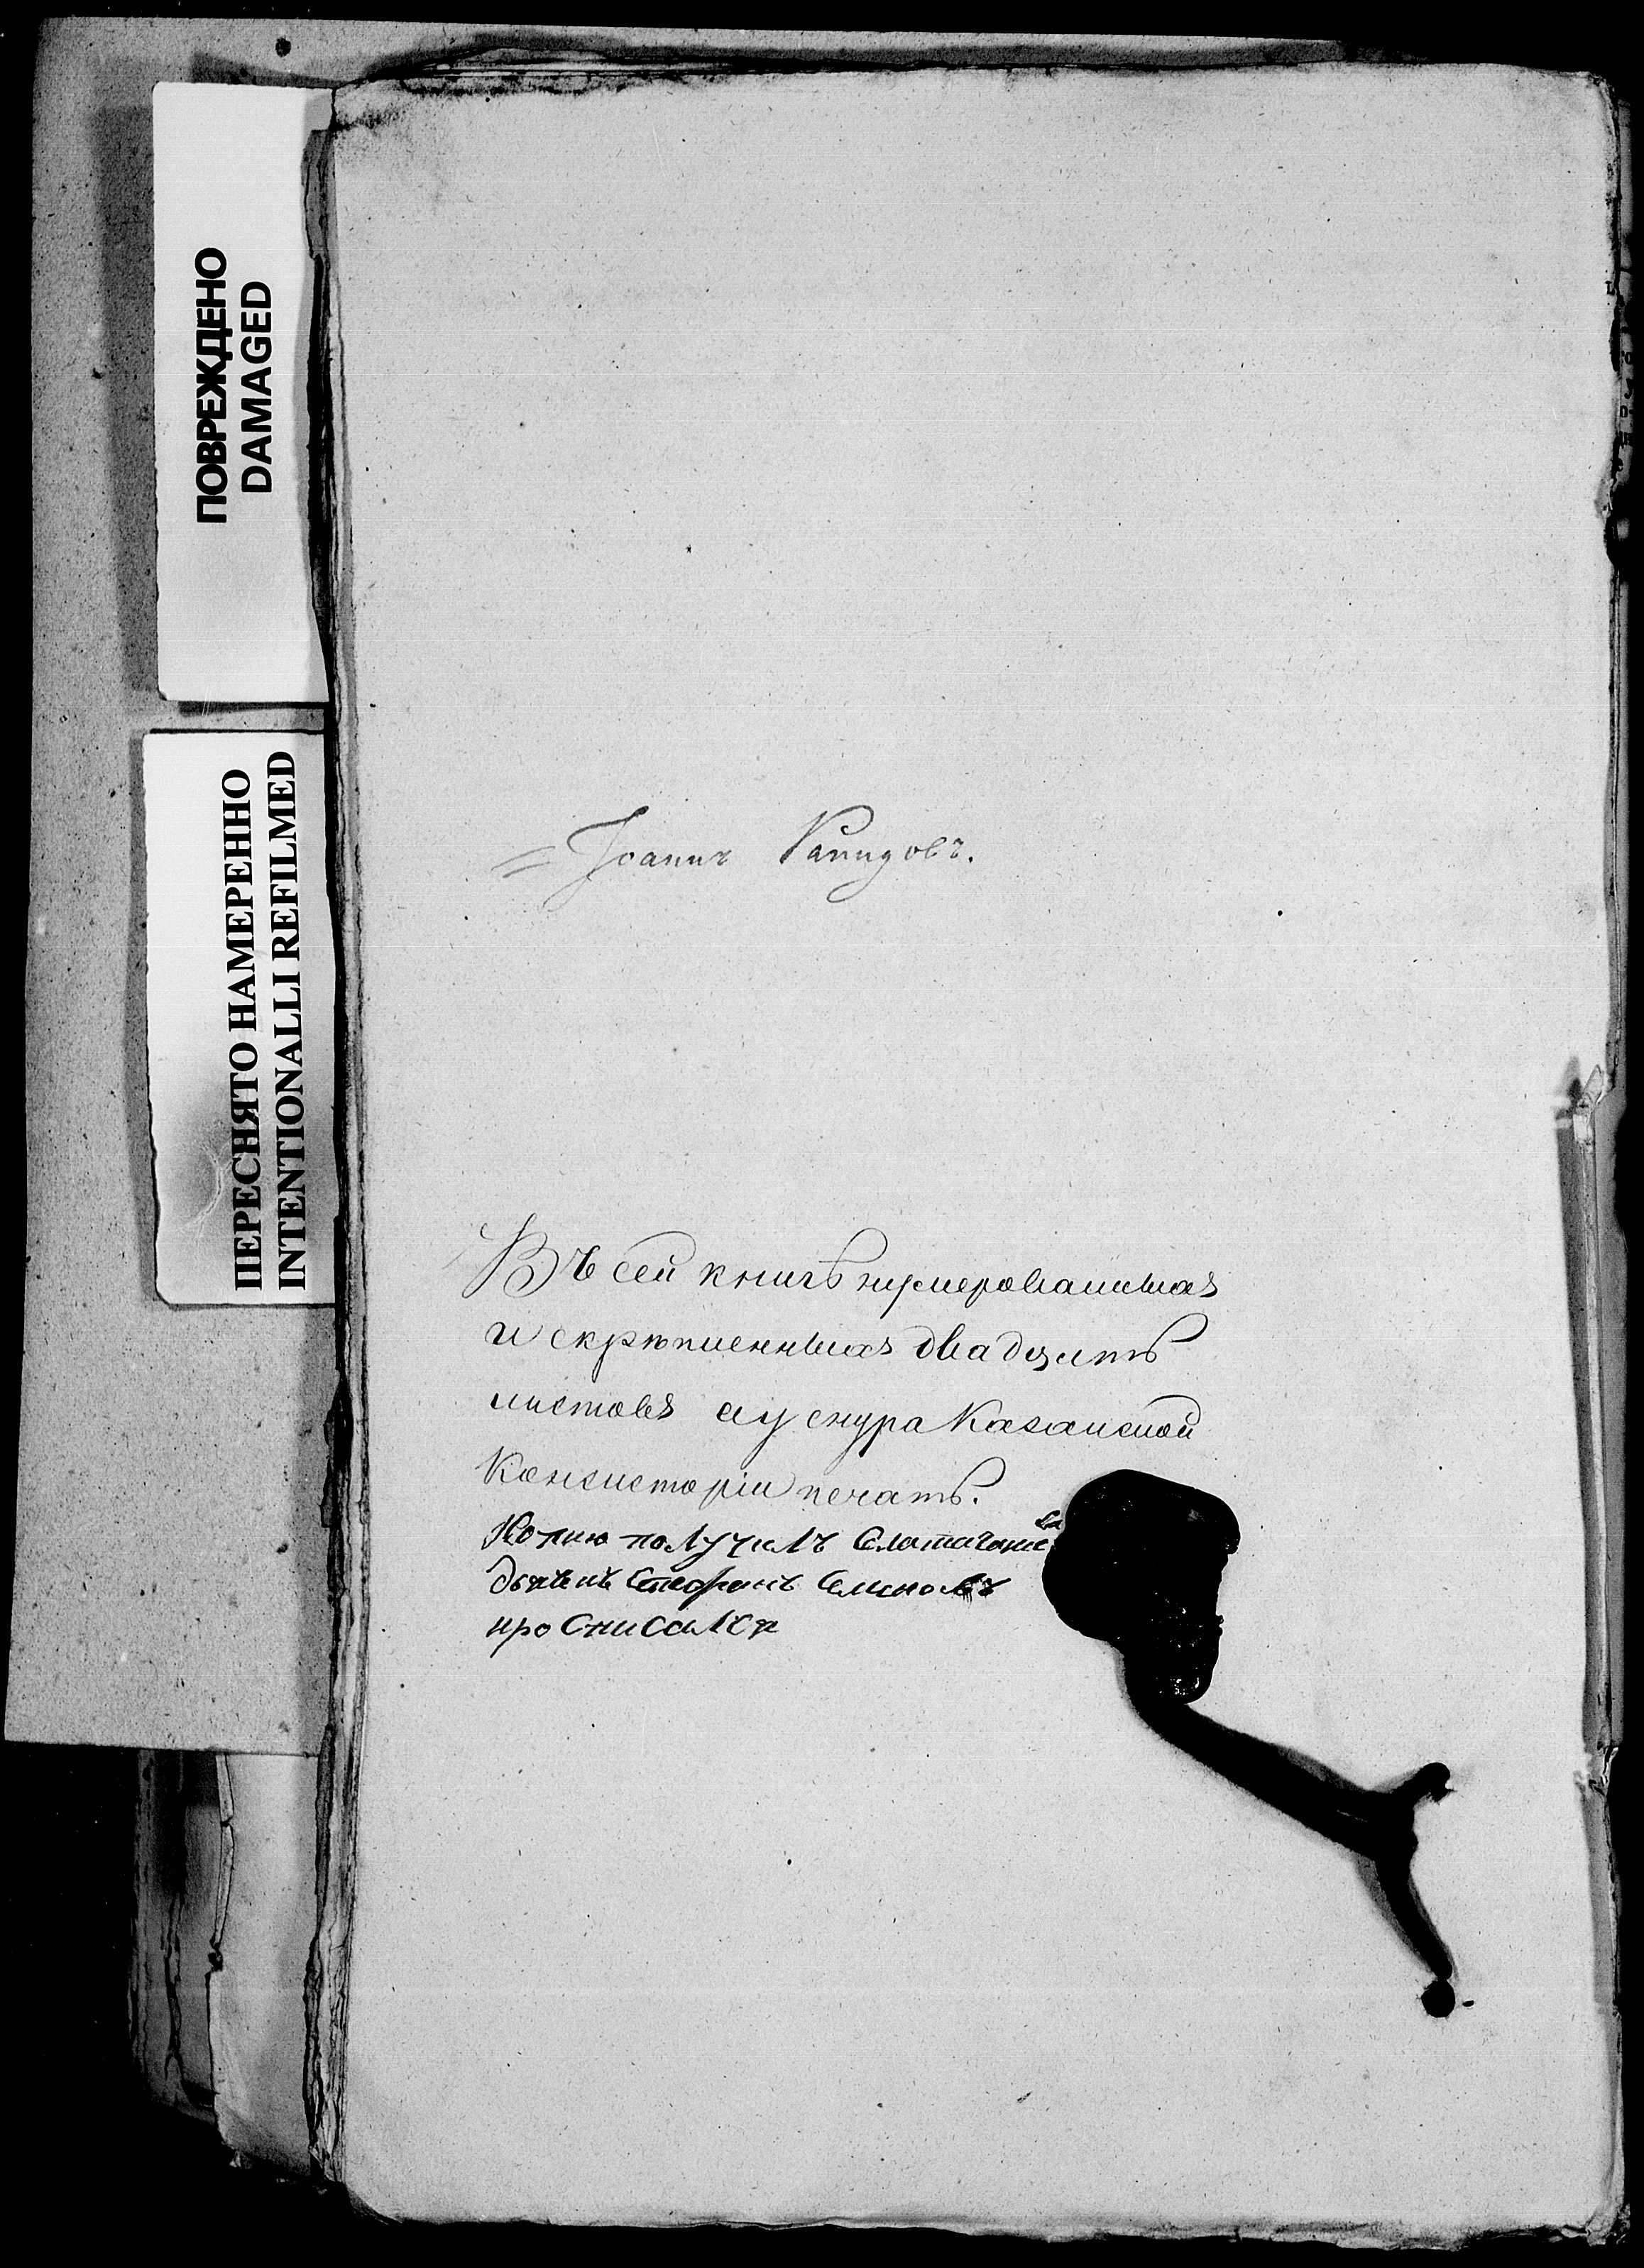 ПОВРЕЖДЕНО
DAMAGED
ПЕРЕСНЯТО НАМЕРЕННО
INTENTIONALLI REFILMED
= Іоаннъ Рапидовъ.
Въ сей книгѣ нумерованныхъ
и скрѣпленныхъ двадцать
листовъ а у снура Казанской
Консисторіи печать.
Копию получилъ
дьячекъ Стефанъ Семновъ